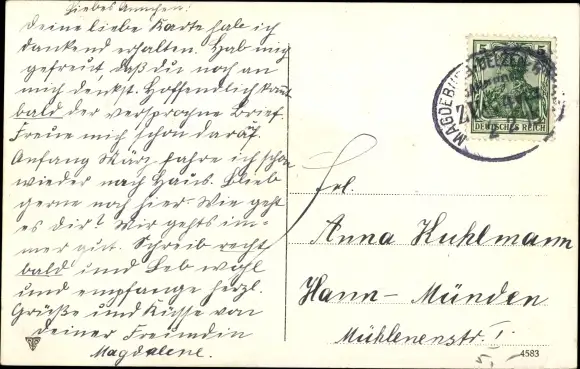 Liebes Annchen!
Deine liebe Karte hab ich
dankend erhalten. Hab mich
gefreut, daß du noch an
mich denkst. Hoffendlich kommt
bald der versprochne Brief.
Freue mich schon darauf.
Anfang März fahre ich schon
wieder nach Haus. Blieb
gerne noch hier. Wie geht
es dir? Mir gehts im-
mer gut. Schreib recht
bald und Leb wohl
und empfange herzl.
Grüße und Küsse von
deiner Freundin
Magdalene.
5 5
DEUTSCHES REICH
MAGDEBURG
Frl.
Anna Kuhlmann
Hann-Münden
Mühlenenstr. 1
4583